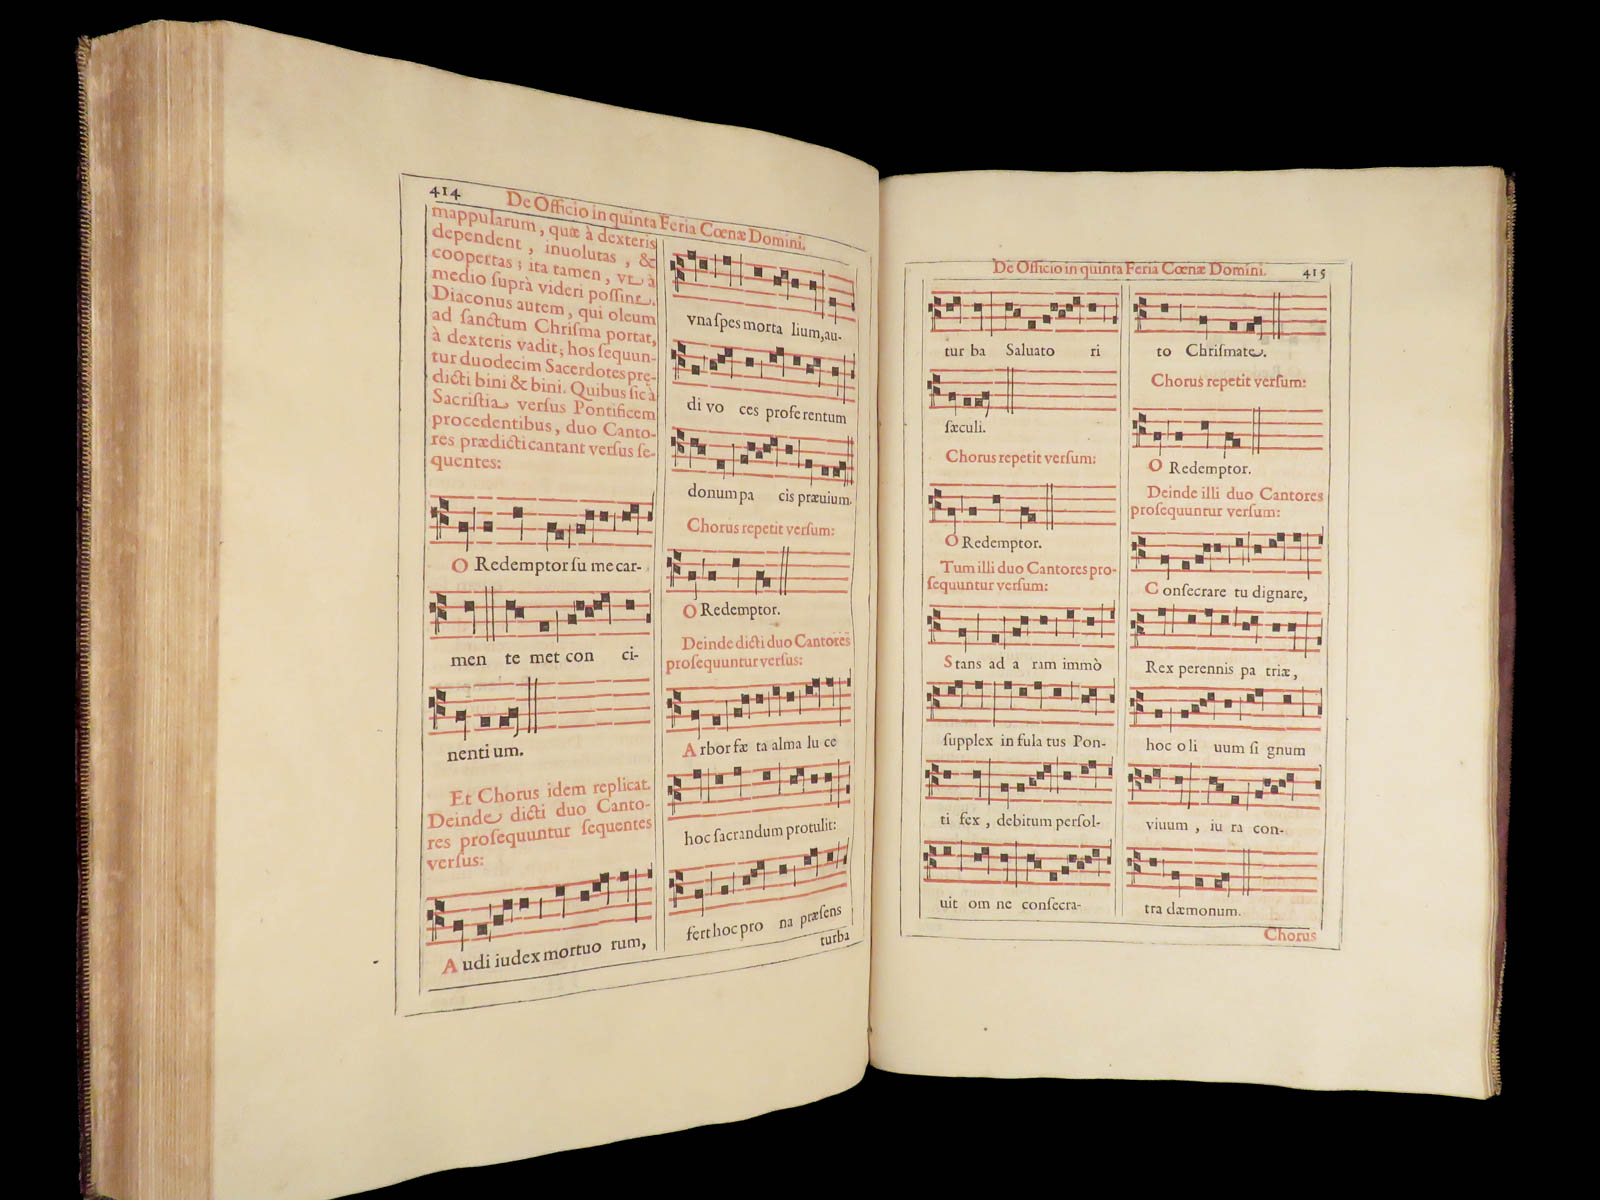 414
De Officio in quinta Feria Cœnæ Domini.
mappularum, quæ à dexteris
dependent, inuolutas, &
coopertas; ita tamen, vt à
medio ſuprà videri poſſint.
Diaconus autem, qui oleum
ad ſanctum Chriſma portat,
à dexteris vadit; hos ſequun-
tur duodecim Sacerdotes prę-
dicti bini & bini. Quibus ſic à
Sacriſtia verſus Pontificem
procedentibus, duo Canto-
res prædicti cantant verſus ſe-
quentes:
O Redemptor ſu me car-
men te met con ci-
nenti um.
Et Chorus idem replicat.
Deinde dicti duo Canto-
res proſequuntur ſequentes
verſus:
A udi iudex mortuo rum,
vna ſpes morta lium, au-
di vo ces profe rentum
donum pa cis præuium.
Chorus repetit verſum:
O Redemptor.
Deinde dicti duo Cantores
proſequuntur verſus:
A rbor fæ ta alma lu ce
hoc ſacrandum protulit:
fert hoc pro na præſens
turba
De Officio in quinta Feria Cœnæ Domini.
415
tur ba Saluato ri
ſæculi.
Chorus repetit verſum:
O Redemptor.
Tum illi duo Cantores pro-
ſequuntur verſum:
S tans ad a ram immò
ſupplex in fula tus Pon-
ti fex, debitum perſol-
uit om ne conſecra-
to Chriſmate.
Chorus repetit verſum:
O Redemptor.
Deinde illi duo Cantores
proſequuntur verſum:
C onſecrare tu dignare,
Rex perennis pa triæ,
hoc o li uum ſi gnum
viuum, iu ra con-
tra dæmonum.
Chorus